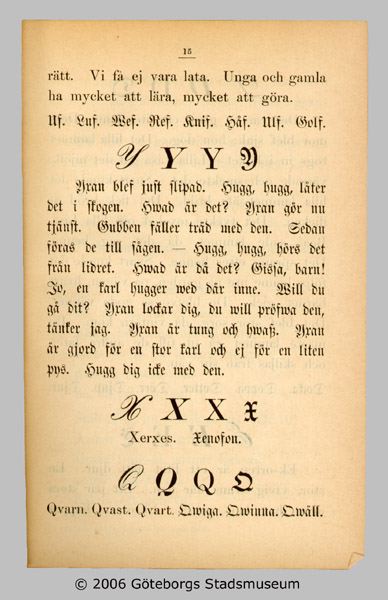 15
rätt. Vi få ej vara lata. Unga och gamla
ha mycket att lära, mycket att göra.
Uf. Luf. Wef. Ref. Knif. Håf. Ulf. Golf.
Y Y Y Y
Yxan blef just slipad. Hugg, hugg, låter
det i skogen. Hwad är det? Yxan gör nu
tjänst. Gubben fäller träd med den. Sedan
föras de till sågen. — Hugg, hugg, hörs det
från lidret. Hwad är då det? Gissa, barn!
Jo, en karl hugger wed där inne. Will du
gå dit? Yxan lockar dig, du will pröfwa den,
tänker jag. Yxan är tung och hwaß. Yxan
är gjord för en stor karl och ej för en liten
pys. Hugg dig icke med den.
X X X X
Xerxes. Xenofon.
Q Q Q Q
Qvarn. Qvast. Qvart. Qwiga. Qwinna. Qwäll.
© 2006 Göteborgs Stadsmuseum